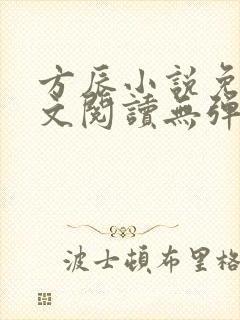 方辰小說免
文閱讀無彈
波士頓布里格